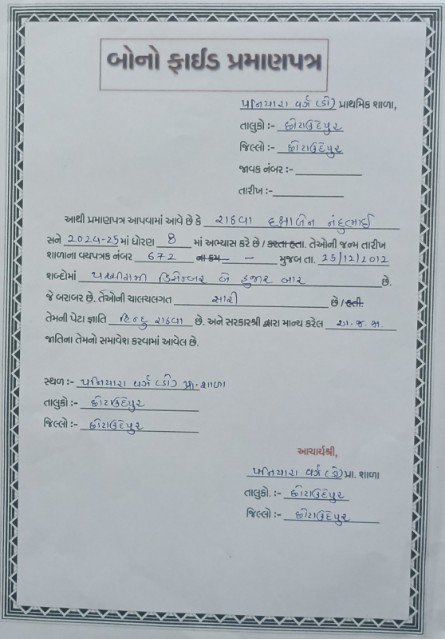 બોનો ફાઈડ પ્રમાણપત્ર
પનિયારા વર્ગ (ડી) પ્રાથમિક શાળા,
તાલુકો :- છોટાઉદેપુર
જિલ્લો :- છોટાઉદેપુર
જાવક નંબર :-
તારીખ :-
આથી પ્રમાણપત્ર આપવામાં આવે છે કે રાઠવા દક્ષાબેન નંદુભાઈ
સને 2024-25 માં ધોરણ 8 માં અભ્યાસ કરે છે / કરતા હતા. તેઓની જન્મ તારીખ
શાળાના વયપત્રક નંબર 672 ના ક્રમ - મુજબ તા. 25/12/2012
શબ્દોમાં પચ્ચીસમી ડિસેમ્બર બે હજાર બાર છે.
જે બરાબર છે. તેઓની ચાલચલગત સારી છે / હતી.
તેમની પેટા જ્ઞાતિ હિન્દુ રાઠવા છે. અને સરકારશ્રી દ્વારા માન્ય કરેલ અ.જ.જા.
જાતિના તેમનો સમાવેશ કરવામાં આવેલ છે.
સ્થળ :- પનિયારા વર્ગ (ડી) પ્રા. શાળા
તાલુકો :- છોટાઉદેપુર
જિલ્લો :- છોટાઉદેપુર
આચાર્યશ્રી,
પનિયારા વર્ગ (ડી) પ્રા. શાળા
તાલુકો. :- છોટાઉદેપુર
જિલ્લો :- છોટાઉદેપુર